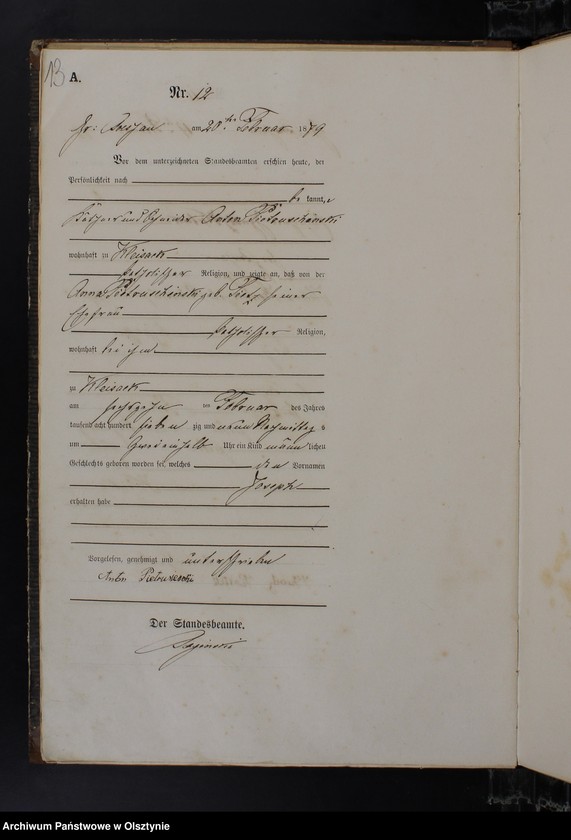 13
A.
Nr. 12
am 20ten Februar 1879
Vor dem unterzeichneten Standesbeamten erschien heute, der
Persönlichkeit nach
be kannt,
und Schneider Anton
wohnhaft zu Kleisack
katholischer Religion, und zeigte an, daß von der
Anna geb. seiner
Ehefrau
katholischer Religion,
wohnhaft bei ihm
zu Kleisack
am sechszehn ten Februar des Jahres
tausend acht hundert sieben zig und neun Nachmittags
um zwei einhalb Uhr ein Kind männ lichen
Geschlechts geboren worden sei, welches den Vornamen
Joseph
erhalten habe
Vorgelesen, genehmigt und unterschrieben
Anton
Der Standesbeamte.
Archiwum Państwowe w Olsztynie